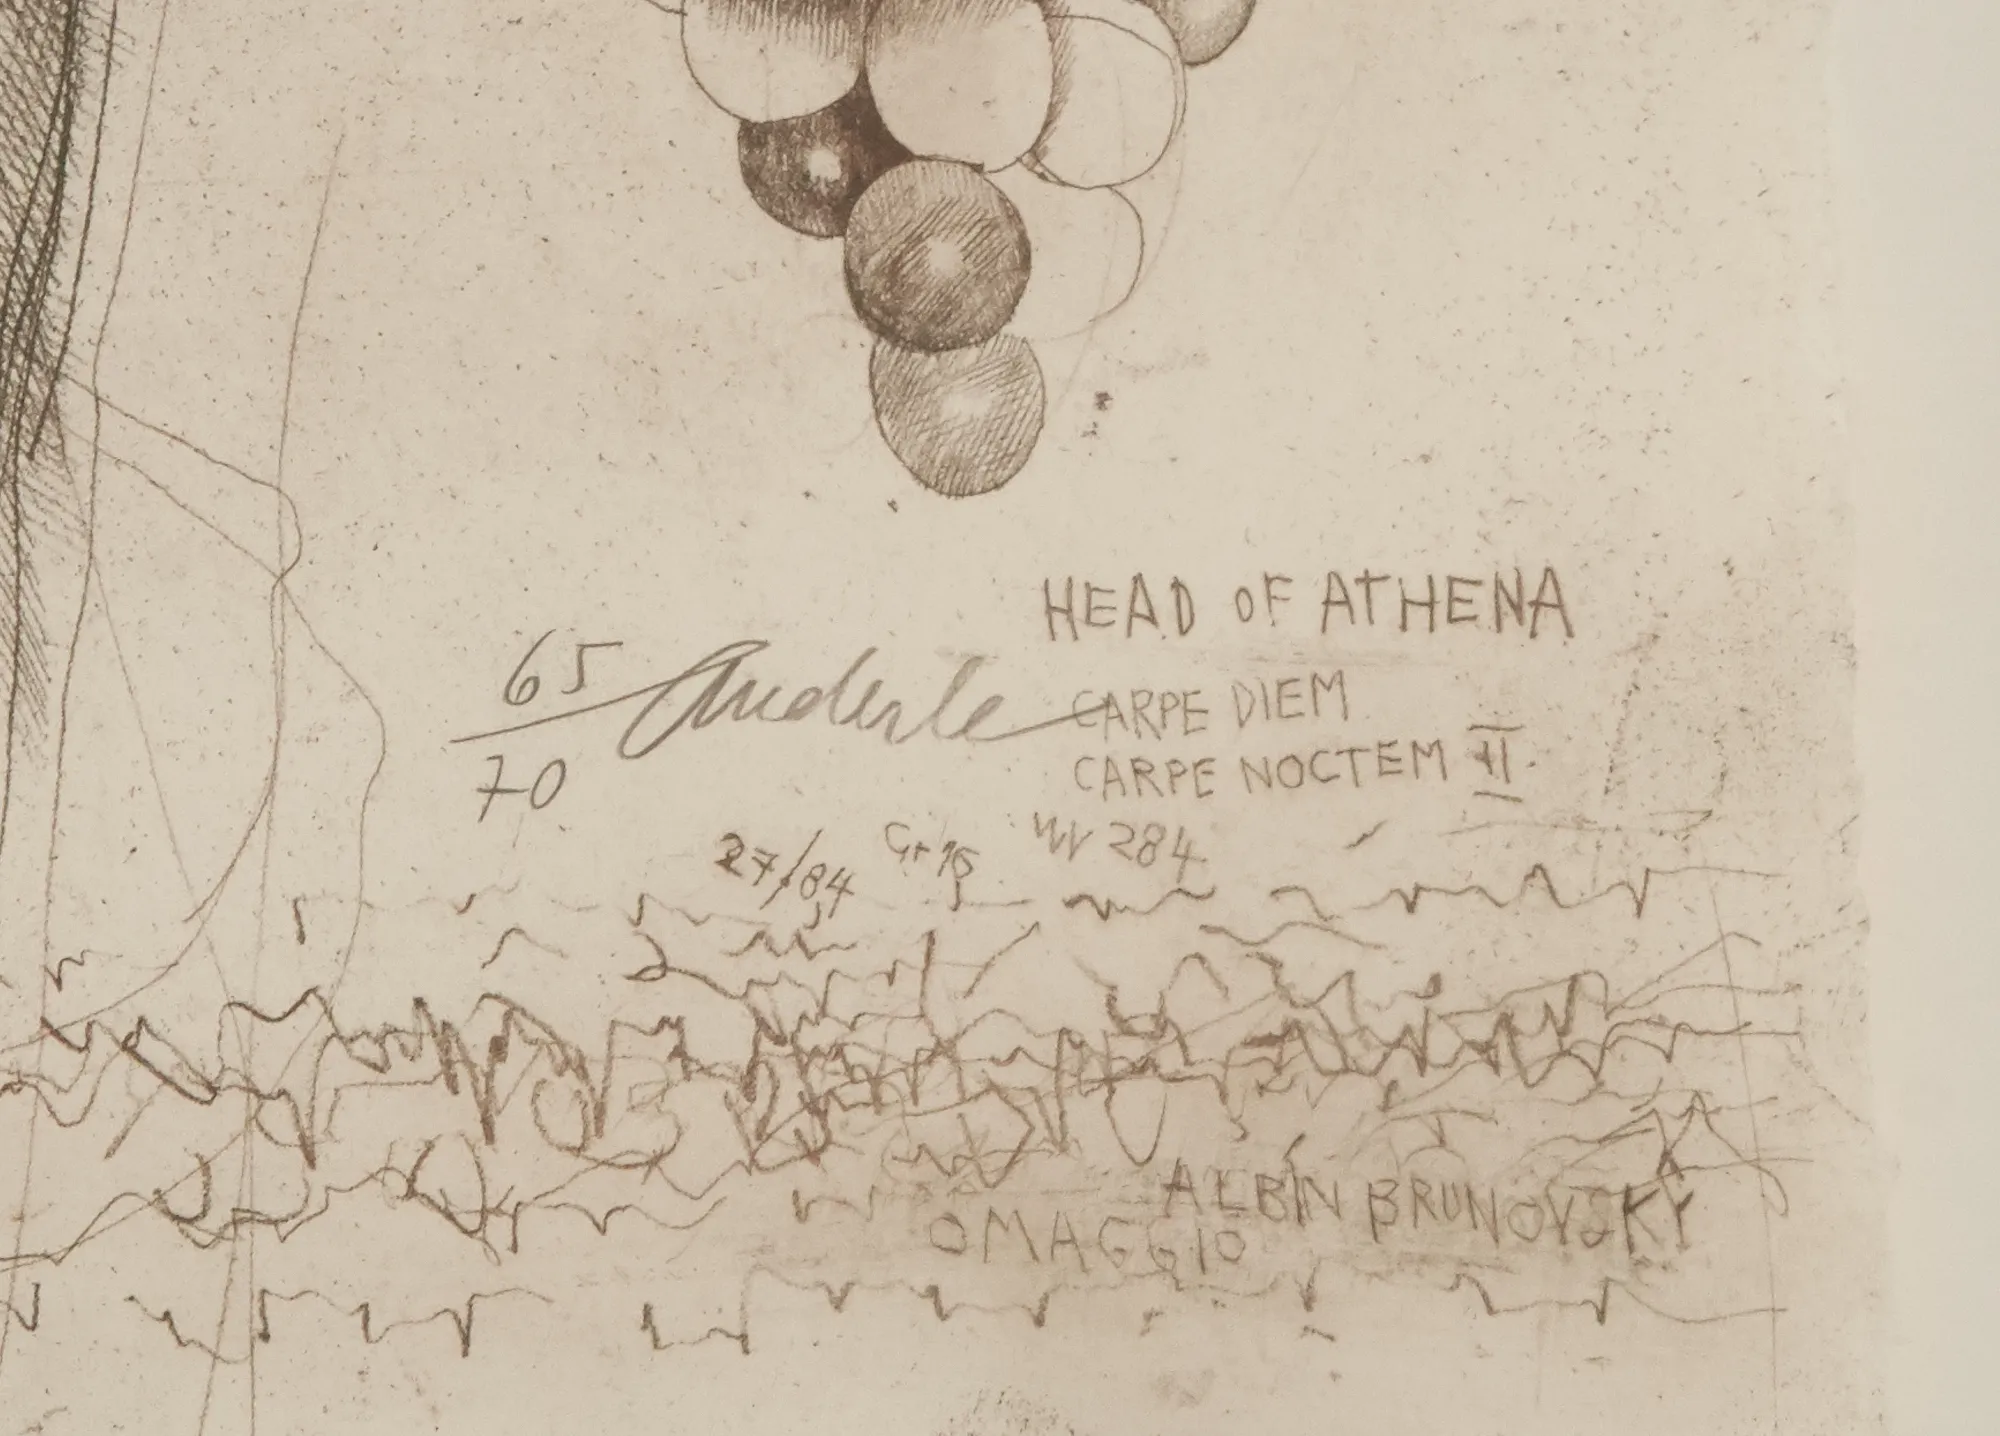 HEAD OF ATHENA
65/70 Anderle
CARPE DIEM
CARPE NOCTEM II.
27/84 Gr 15 W 284
ALBÍN BRUNOVSKY
OMAGGIO